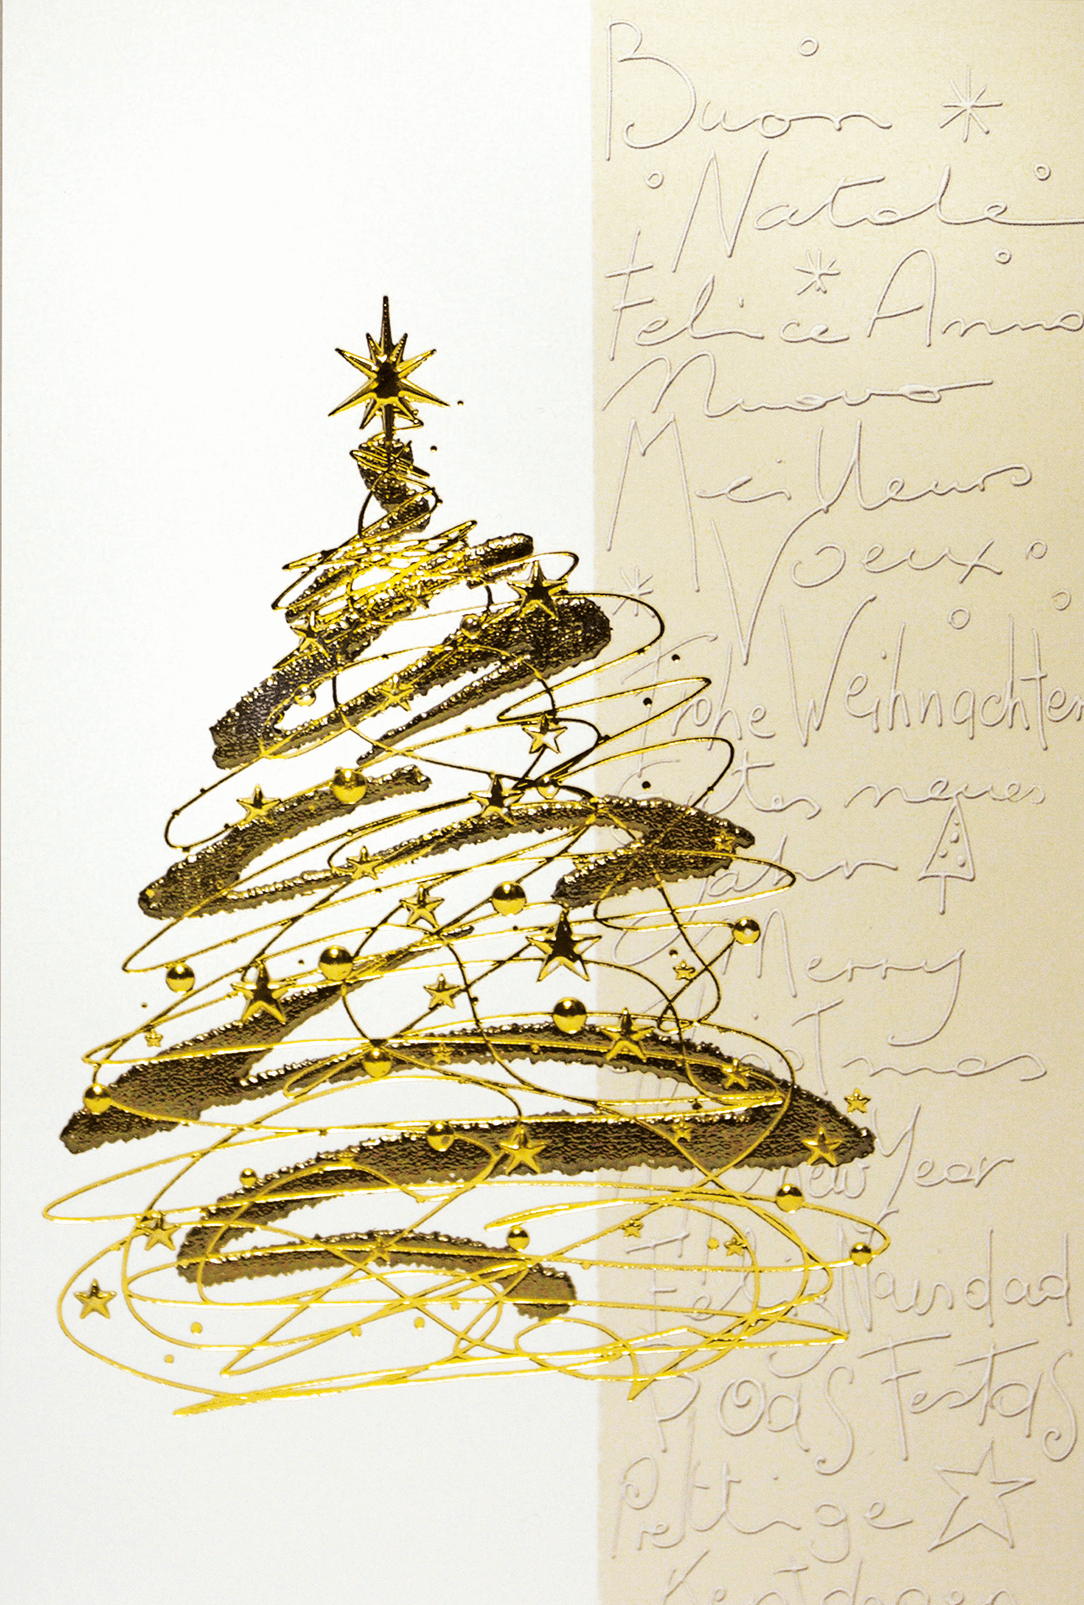 Buon
Natale
Felice Anno
Nuovo
Meilleurs
Voeux
Frohe Weihnachten
neues
Jahr
Merry
New Year
Feliz Navidad
Boas Festas
Prettige